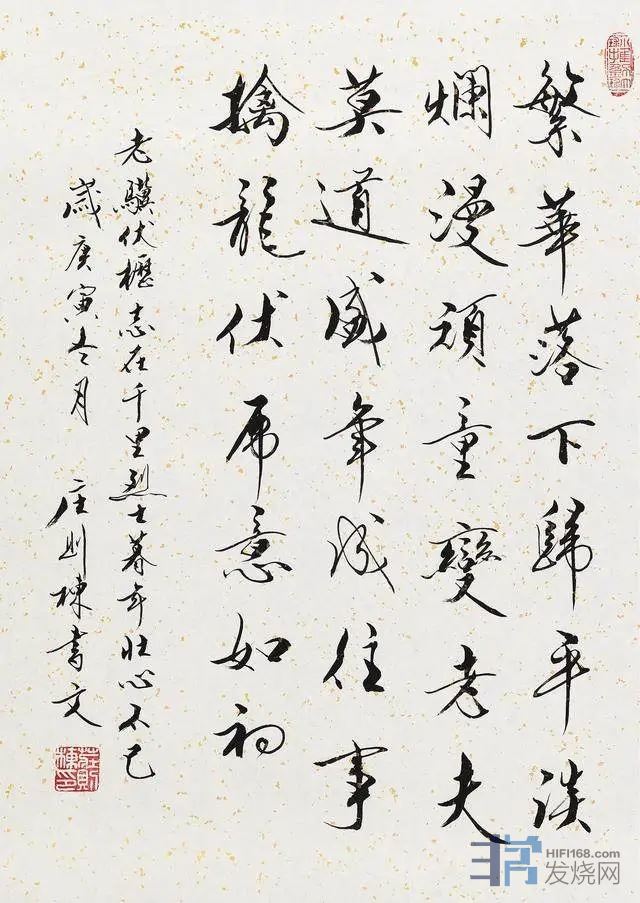 繁華落下歸平淡
爛漫頑童變老夫
莫道盛年成往事
擒龍伏虎意如初
老驥伏櫪志在千里烈士暮年壯心不已
歲庚寅冬月 庄则棟書文
莊則棟印
HIFI168.com
发烧网